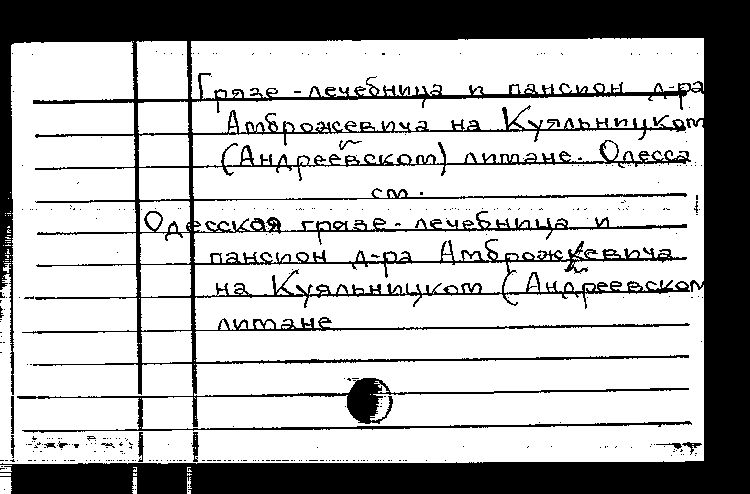 Грязе-лечебница и пансион д-ра
Амброжевича на Куяльницком
(Андреевском) лимане. Одесса
см.
Одесская грязе-лечебница и
пансион д-ра Амброжевича
на Куяльницком (Андреевском
лимане